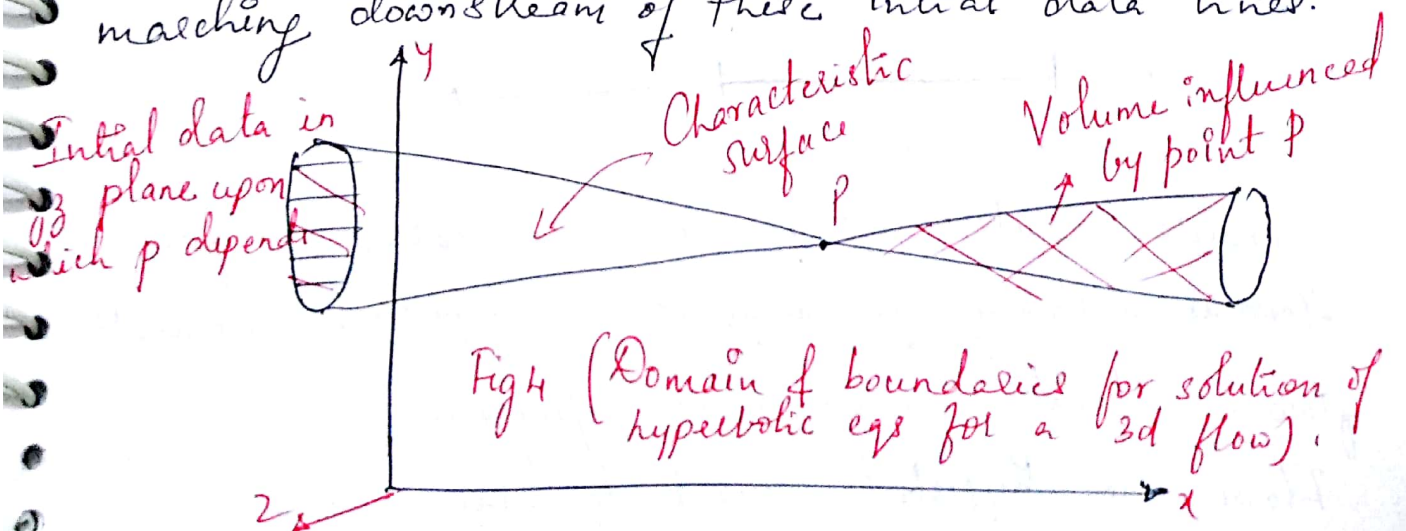 marching downstream of these initial data lines.
y
Intial data in
yz plane upon
which p depends
Characteristic
surface
Volume influenced
by point P
P
Fig 4 (Domain & boundaries for solution of
hyperbolic eqs for a 3d flow).
z
x